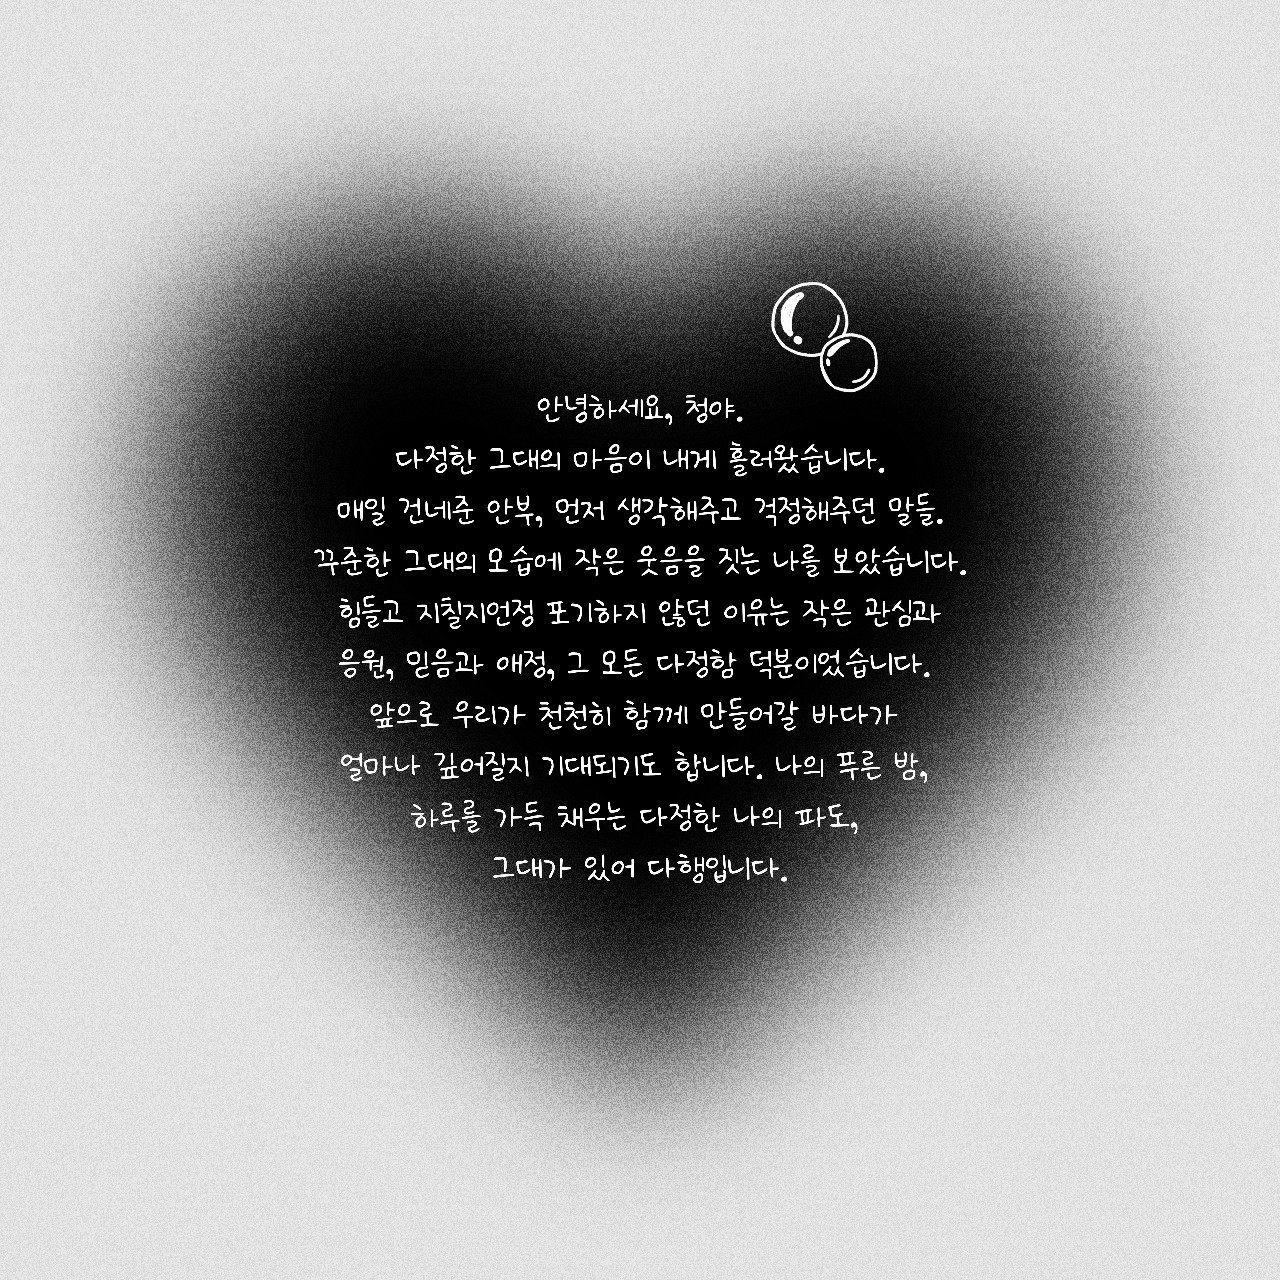 안녕하세요, 청야.
다정한 그대의 마음이 내게 흘러왔습니다.
매일 건네준 안부, 먼저 생각해주고 걱정해주던 말들.
꾸준한 그대의 모습에 작은 웃음을 짓는 나를 보았습니다.
힘들고 지칠지언정 포기하지 않던 이유는 작은 관심과
응원, 믿음과 애정, 그 모든 다정함 덕분이었습니다.
앞으로 우리가 천천히 함께 만들어갈 바다가
얼마나 깊어질지 기대되기도 합니다. 나의 푸른 밤,
하루를 가득 채우는 다정한 나의 파도,
그대가 있어 다행입니다.